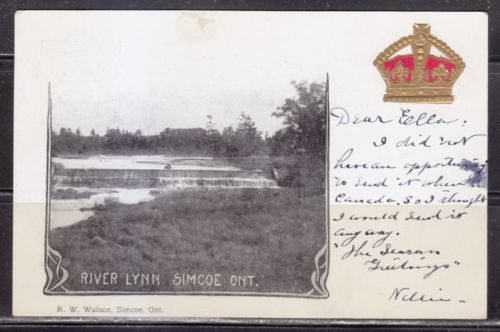 RIVER LYNN SIMCOE ONT.
R. W. Wallace, Simcoe, Ont.
Dear Ella:
I did not
have an opportunity
to send it when in
Canada, so I thought
I would send it
any way.
"The Season
Greetings"
Nellie.